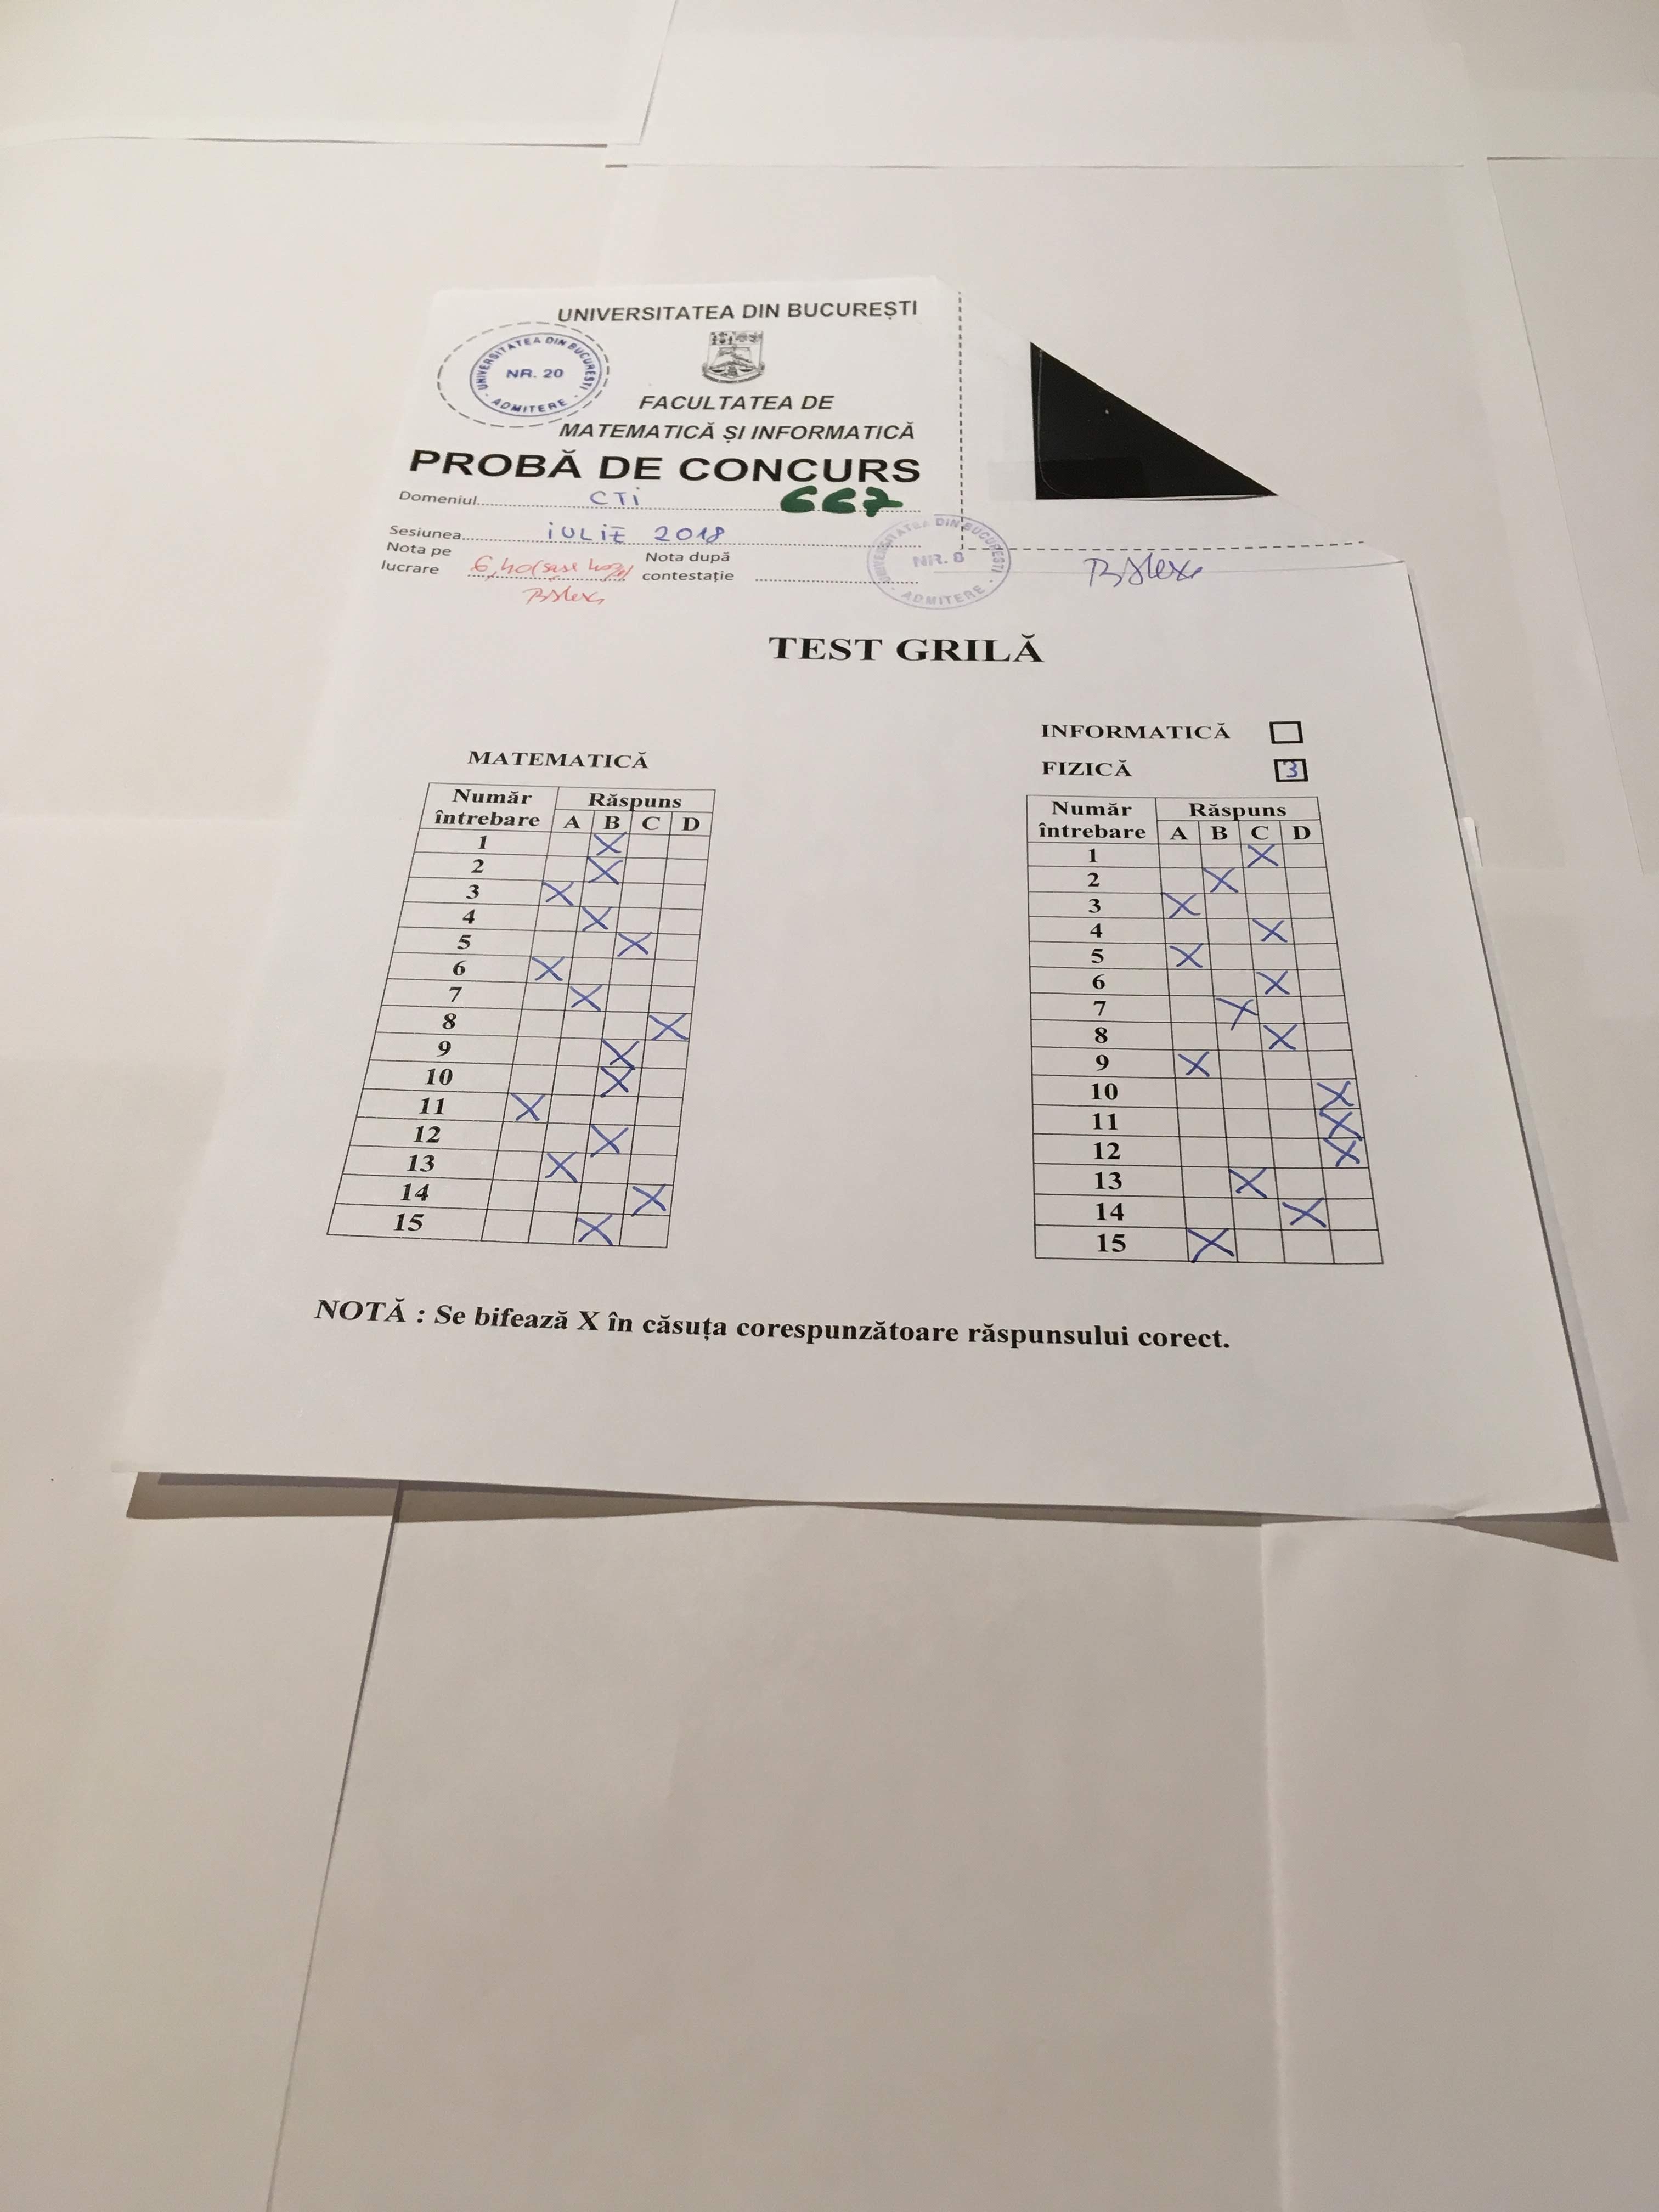 UNIVERSITATEA DIN BUCUREȘTI
UNIVERSITATEA DIN BUCUREȘTI
NR. 20
ADMITERE
FACULTATEA DE
MATEMATICĂ ȘI INFORMATICĂ
PROBĂ DE CONCURS
Domeniul CTI 667
Sesiunea IULIE 2018
Nota pe lucrare 6,40 (șase
Nota după contestație
UNIVERSITATEA DIN BUCUREȘTI
NR. 8
ADMITERE
TEST GRILĂ
MATEMATICĂ
Număr întrebare Răspuns
A B C D
1 X
2 X
3 X
4 X
5 X
6 X
7 X
8 X
9 X
10 X
11 X
12 X
13 X
14 X
15 X
INFORMATICĂ
FIZICĂ 3
Număr întrebare Răspuns
A B C D
1 X
2 X
3 X
4 X
5 X
6 X
7 X
8 X
9 X
10 X
11 X
12 X
13 X
14 X
15 X
NOTĂ : Se bifează X în căsuța corespunzătoare răspunsului corect.